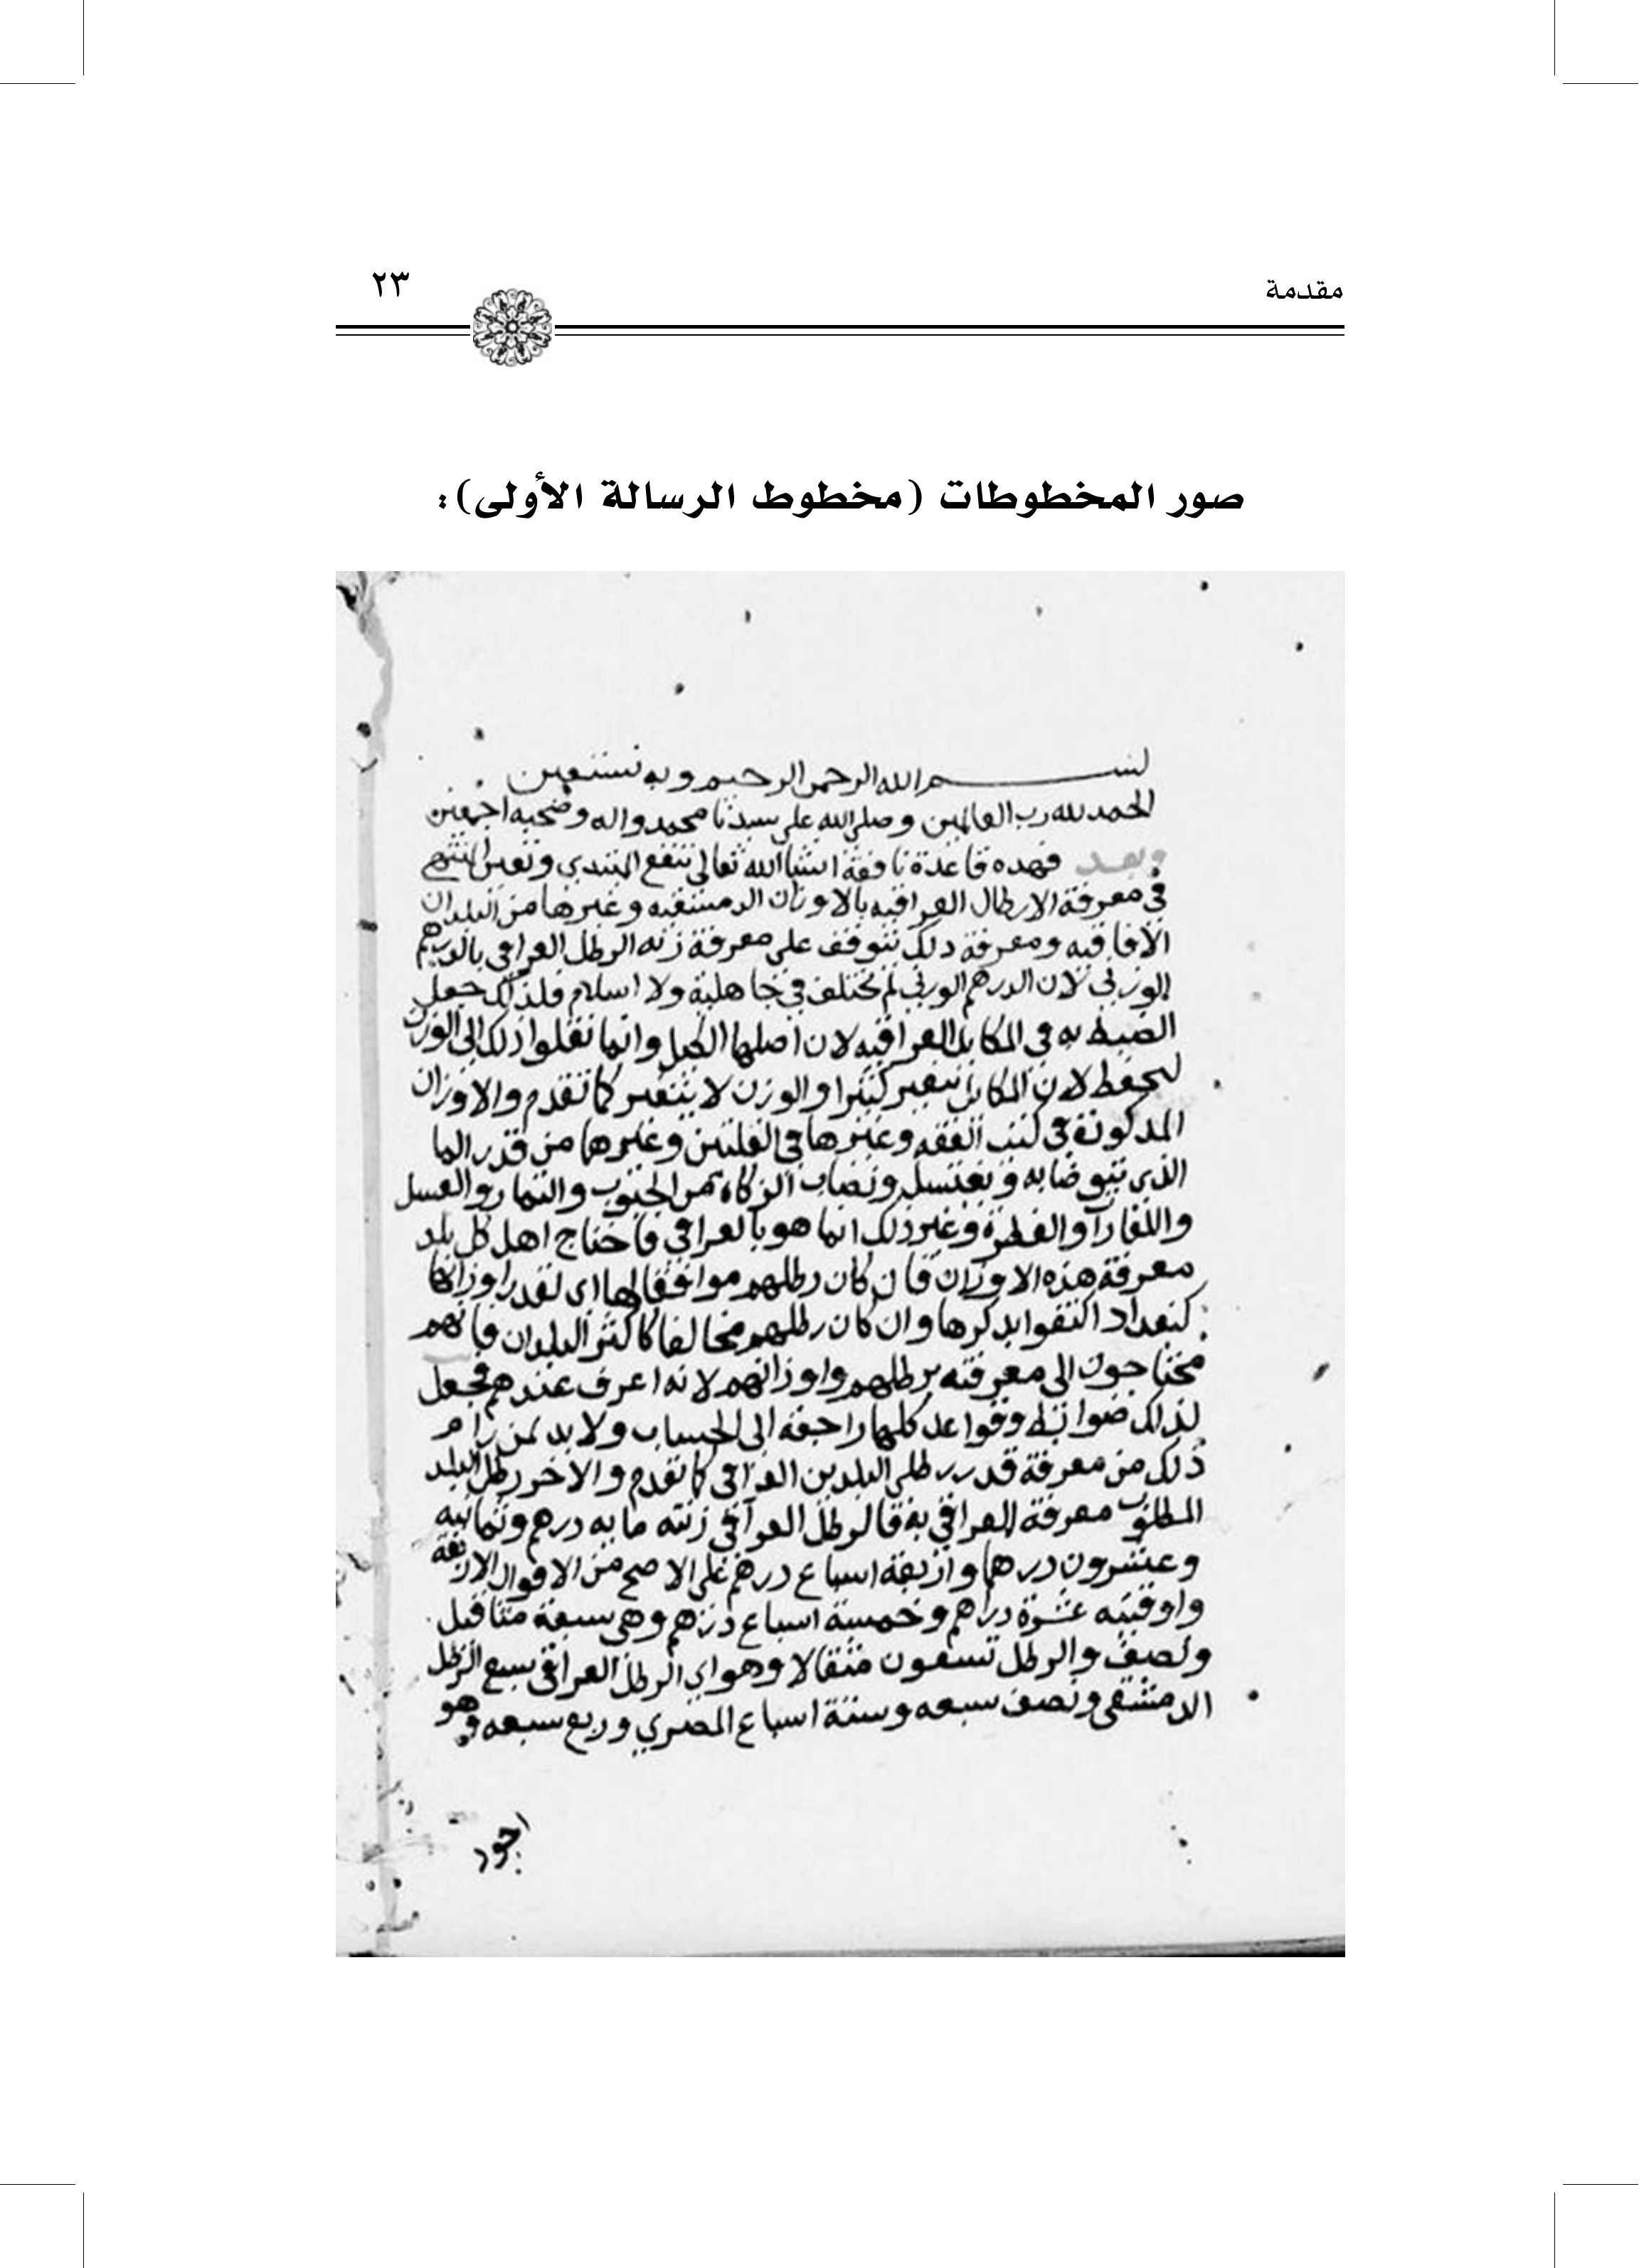 مقدمة
٢٣
صور المخطوطات (مخطوط الرسالة الأولى):
بسم الله الرحمن الرحيم وبه نستعين
الحمد لله رب العالمين وصلى الله على سيدنا محمد واله وصحبه اجمعين
وبعد فهده قاعدة نافعة انشا الله تعالى تنفع المبتدي وتعين المنتهي
في معرفة الارطال العراقيه بالاوزان الدمشقيه وغيرها من البلدان
الافاقيه ومعرفة دلك تتوقف على معرفة زنه الرطل العراقي بالدرهم
الوزني لان الدرهم الوزني لم يختلف في جاهلية ولا اسلام فلذلك جعل
الضبط به في المكايل العراقيه لان اصلها الكيل وانما نقلوا ذلك الى الوزن
ليحفظ لان المكايل تتغير كثيرا والوزن لا يتغير كما تقدم والاوزان
المدكورة في كتب الفقه وغيرها في القلتين وغيرهما من قدر الما
الذي يتوضا به ويغتسل ونصاب الزكاه من الحبوب والثمار والعسل
والفطرة وغير ذلك انما هو بالعراقي فاحتاج اهل كل بلد
معرفة هذه الاوزان فان كان رطلهم موافقا لها اي لقدر اوزانها
كبغداد اكتفوا بدكرها وان كان رطلهم مخالفا كاكثر البلدان فانهم
محتاجون الى معرفته برطلهم واوزانهم لانه اعرف عندهم فجعل
لذلك ضوابط وقواعد كلها راجعة الى الحساب ولا بد لمن رام
ذلك من معرفة قدر رطلي البلدين العراقي كما تقدم والاخر رطل البلد
المطلوب معرفة العراقي به فالرطل العراقي زنته مايه درهم وثمانيه
وعشرون درهما واربعة اسباع درهم على الاصح من الاقوال الاربعة
واوقيته عشرة دراهم وخمسة اسباع درهم وهي سبعة مثاقيل
ونصف والرطل تسعون مثقالا وهو اي الرطل العراقي سبع الرطل
الدمشقي ونصف سبعه وستة اسباع المصري وربع سبعه وهو
اجود